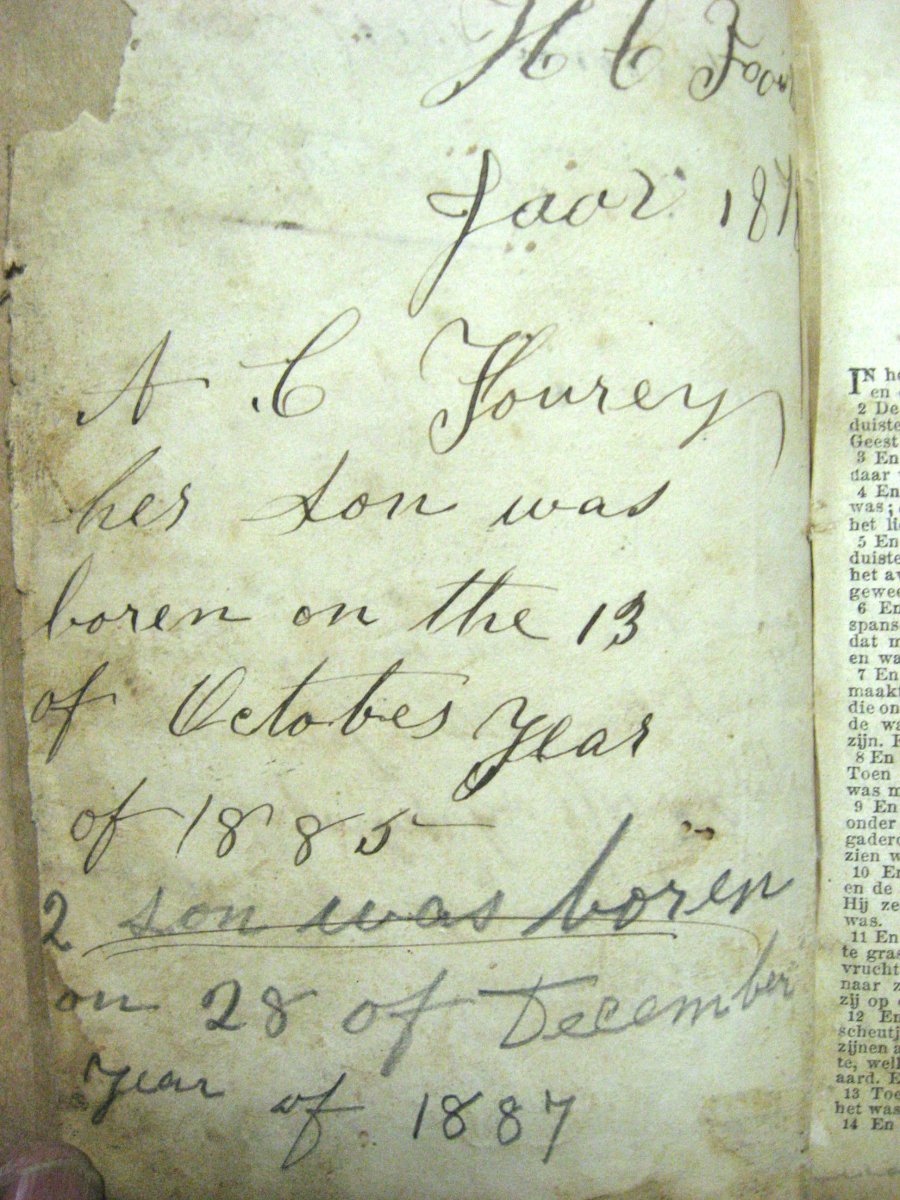 H C
Jaar 187
A C Fourey
her son was
boren on the 13
of October Year
of 1885
2 son was boren
on 28 of December
Year of 1887
IN he
en
2 De
duiste
Geest
3 En
daar
4 En
was;
het li
5 En
duiste
het av
gewee
6 En
spans
dat m
en wa
7 En
maakt
die on
de wa
zijn. E
8 En
Toen
was m
9 En
onder
gader
zien w
10 En
en de
Hij ze
was.
11 En
te gras
vrucht
naar z
zij op
12 En
scheutj
zijnen a
te, wel
aard. E
13 Toe
het was
14 En